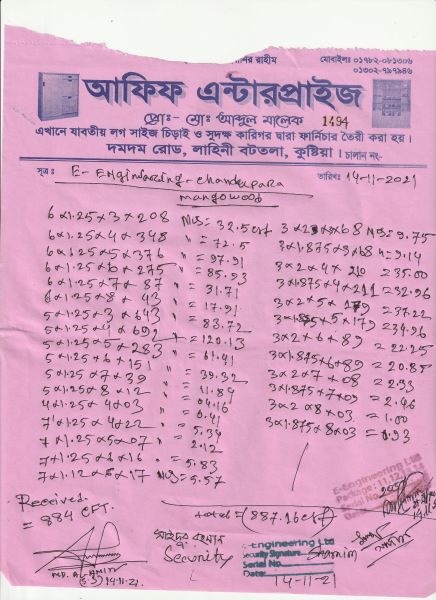 রাহীম মোবাইলঃ ০১৭৮২-০৮১৩০৬
০১৩০২-৭৯৭৯৪৬
আফিফ এন্টারপ্রাইজ
প্রোঃ- মোঃ আব্দুল মালেক 1494
এখানে যাবতীয় লগ সাইজ চিড়াই ও সুদক্ষ কারিগর দ্বারা ফার্নিচার তৈরী করা হয়।
দমদম রোড, লাহিনী বটতলা, কুষ্টিয়া। চালান নং-
সূত্রঃ E-Engineering-chandrpara তারিখঃ 14-11-2021
mangowood
6×1.25×3×208 = 32.5cft
6×1.25×4×348 " = 72.5
6×1.25×5×376 " = 97.91
6×1.25×6×275 " = 85.93
6×1.25×7×87 " = 31.71
6×1.25×8×43 " = 17.91
5×1.25×3×643 " = 83.72
5×1.25×4×692 " = 120.13
5×1.25×5×283 " = 61.41
5×1.25×6×151 " = 39.32
5×1.25×7×39 " = 11.84
5×1.25×8×12 " = 04.16
4×1.25×4×03 " = 0.41
7×1.25×4×22 " = 5.34
7×1.25×5×07 " = 2.12
7×1.25×6×16 " = 5.83
= 5.57
3×2×3×68 = 8.75
3×1.875×3×68 = 9.14
3×2×4×210 = 35.00
3×1.875×4×211 = 32.96
3×2×5×179 = 37.22
3×1.875×5×179 = 34.96
3×2×6×89 = 22.25
3×1.875×6×89 = 20.85
3×2×7×08 = 2.33
3×1.875×7×09 = 2.46
3×2×8×03 = 1.00
3×1.875×8×03 = 0.93
Received
= 884 CFT.
total = (887.16cft)
E-Engineering Ltd
MD. AL-AMIN
14-11-21
সাইদুর রহমান
Security
E-Engineering Ltd
Security Signature
Shamim
Serial No
Date: 14-11-21